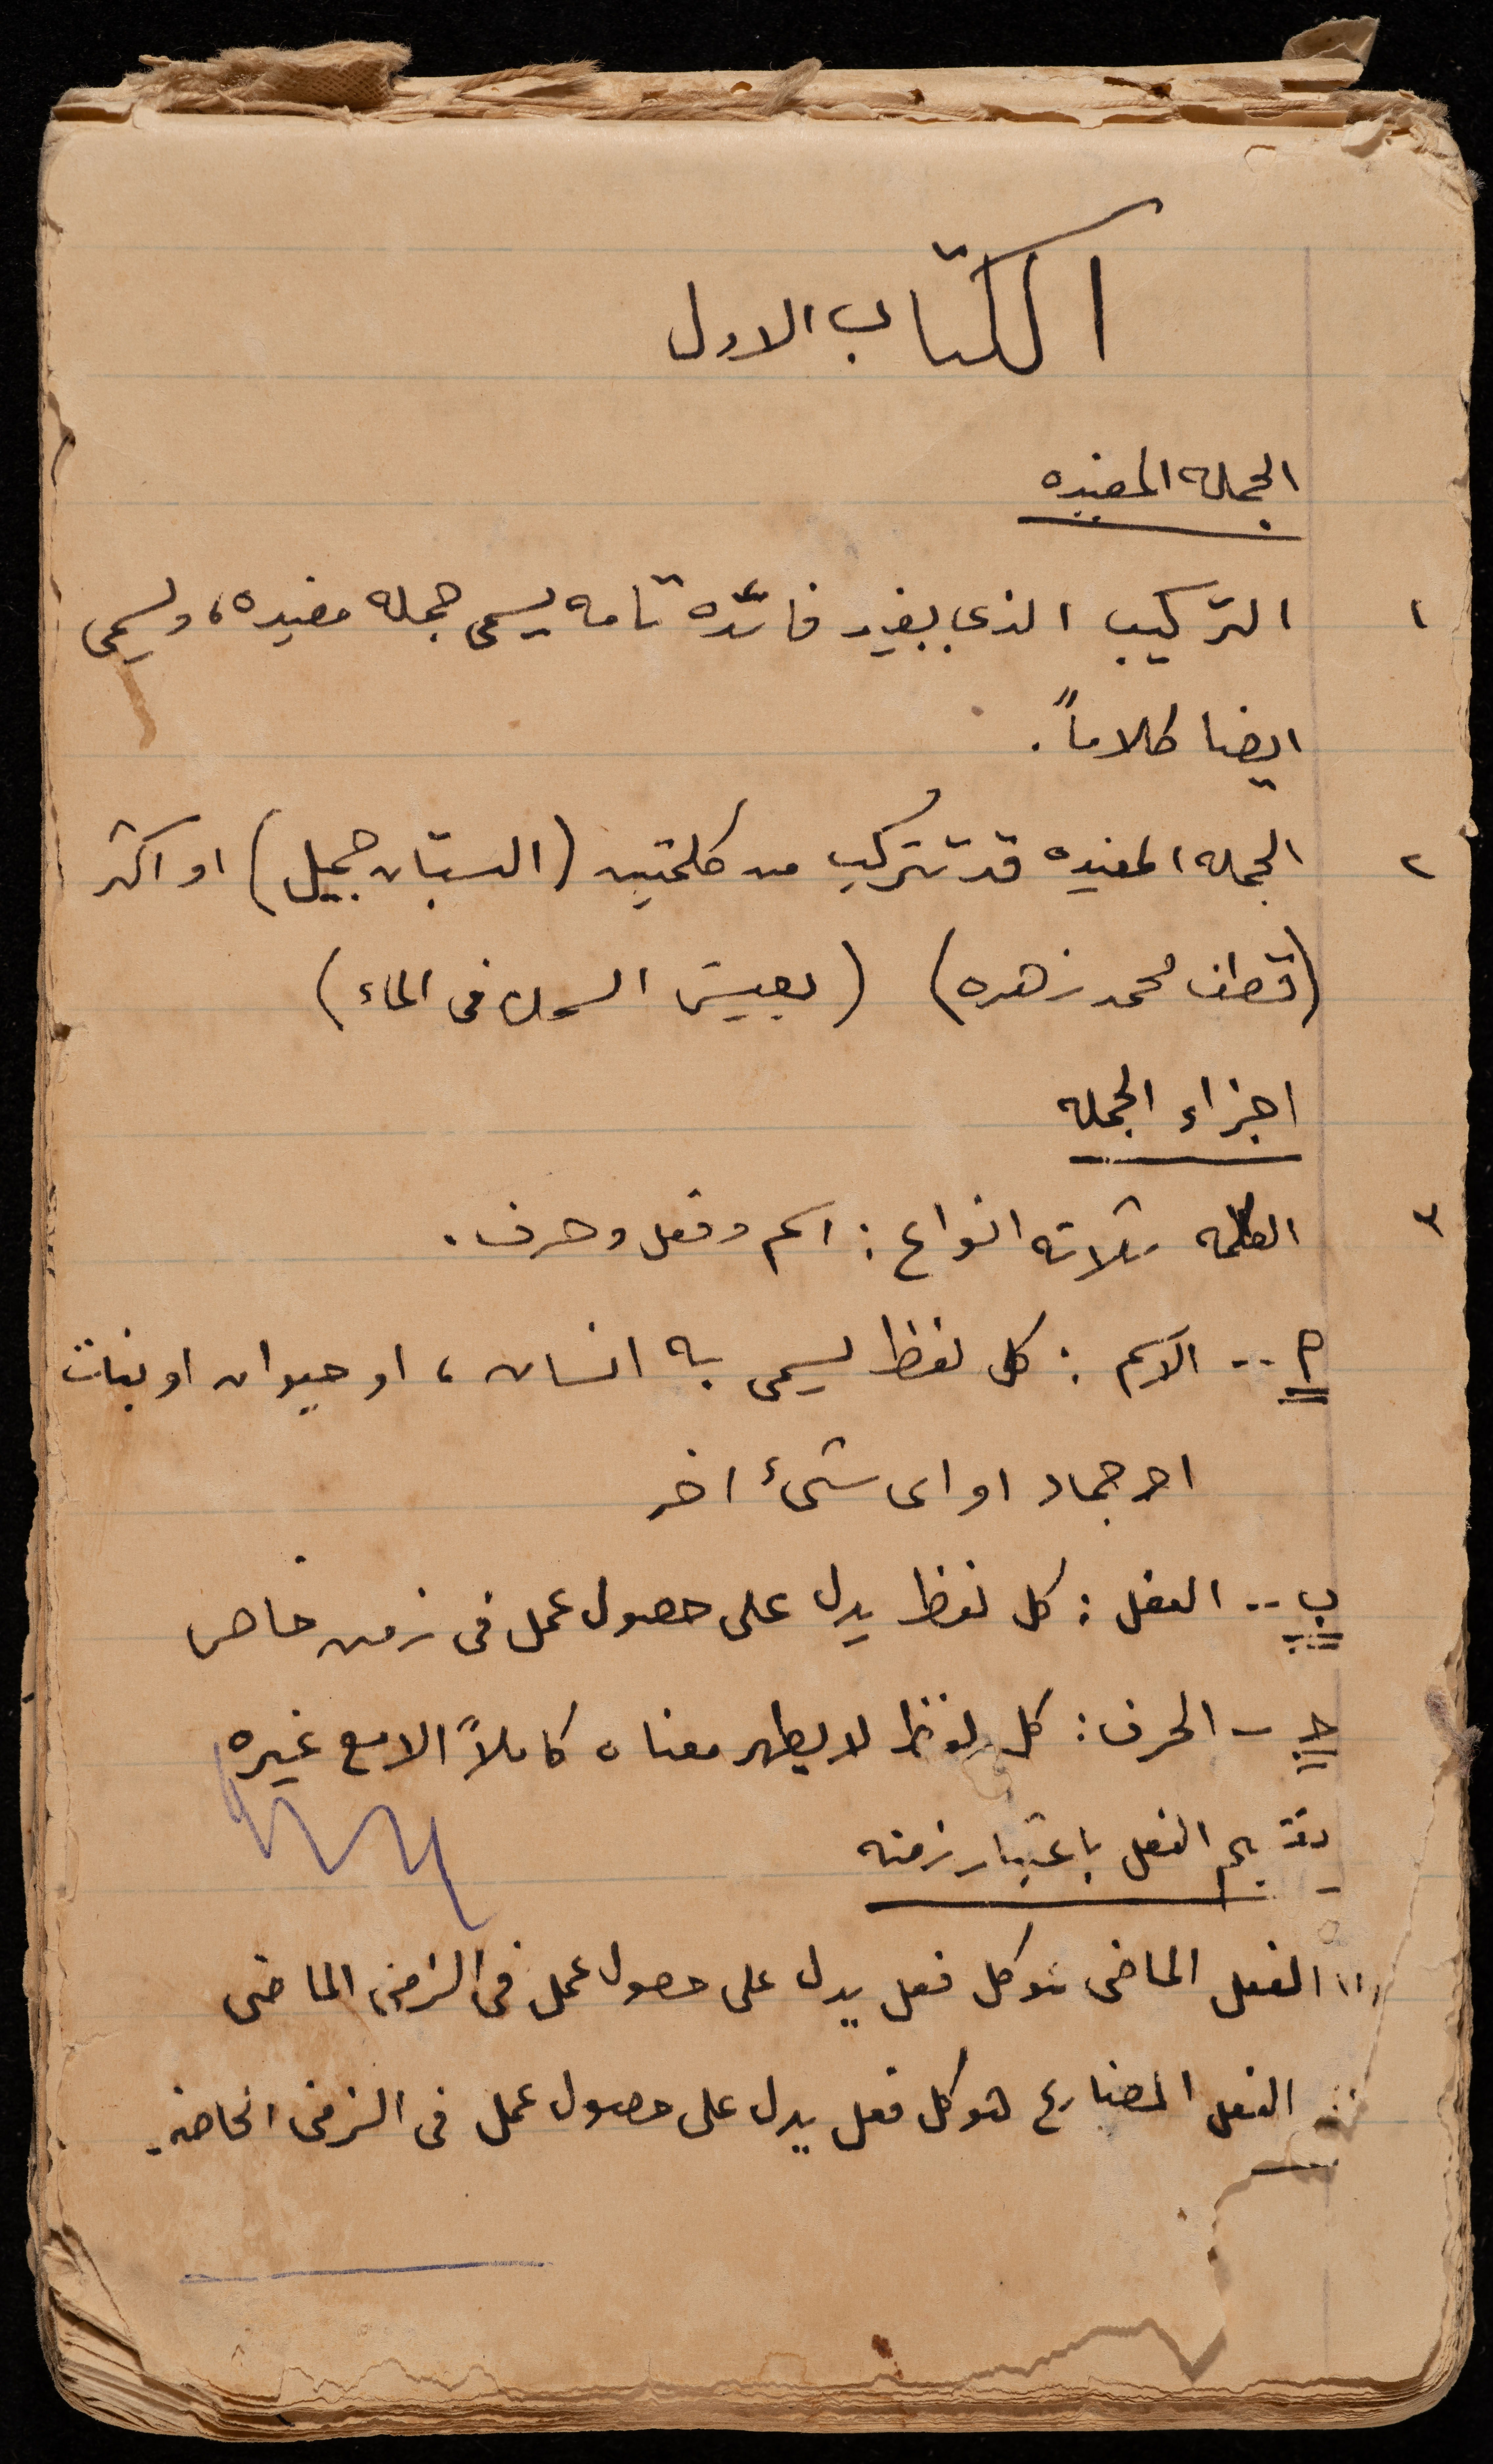 الكتاب الاول
الجمله المفيده
١ التركيب الذى يفيد فائده تامه يسمى جمله مفيده، ويسمى
ايضا كلاماً.
٢ الجمله المفيده قد تتركب من كلمتين (البستان جميل) او اكثر
(قطف محمد زهره) (يعيش السمك فى الماء)
اجزاء الجمله
٣ الكلمه ثلاثه انواع : اسم وفعل وحرف.
أ -- الاسم : كل لفظ يسمى به انسان، او حيوان او نبات
او جماد او اى شئ اخر
ب -- الفعل : كل لفظ يدل على حصول عمل فى زمن خاص
ج - الحرف : كل لفظ لا يظهر معناه كاملاً الا مع غيره
تقسيم الفعل باعتبار زمنه
(١) الفعل الماضى هو كل فعل يدل على حصول عمل فى الزمن الماضى
الفعل المضارع هو كل فعل يدل على حصول عمل فى الزمن الحاضر